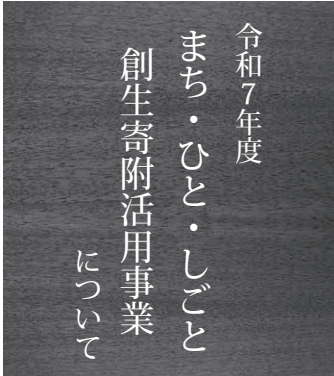 令和7年度
まち・ひと・しごと
創生寄附活用事業
について